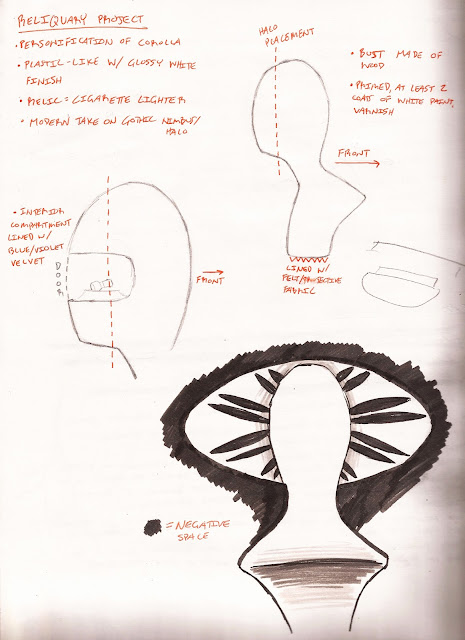 RELIQUARY PROJECT
• PERSONIFICATION OF COROLLA
• PLASTIC-LIKE W/ GLOSSY WHITE
FINISH
• RELIC = CIGARETTE LIGHTER
• MODERN TAKE ON GOTHIC NIMBUS/
HALO
HALO
PLACEMENT
• BUST MADE OF
WOOD
• PRIMED, AT LEAST 2
COAT OF WHITE PAINT,
VARNISH
FRONT
LINED W/
FELT/PROTECTIVE
FABRIC
• INTERIOR
COMPARTMENT
LINED W/
BLUE/VIOLET
VELVET
DOOR
FRONT
= NEGATIVE
SPACE